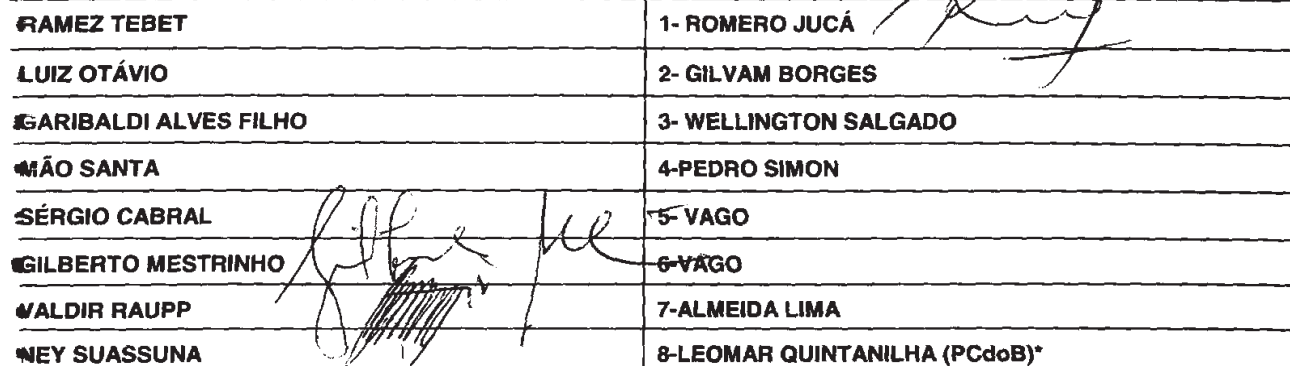 RAMEZ TEBET 1- ROMERO JUCÁ
LUIZ OTÁVIO 2- GILVAM BORGES
GARIBALDI ALVES FILHO 3- WELLINGTON SALGADO
MÃO SANTA 4-PEDRO SIMON
SÉRGIO CABRAL 5- VAGO
GILBERTO MESTRINHO 6-VAGO
VALDIR RAUPP 7-ALMEIDA LIMA
NEY SUASSUNA 8-LEOMAR QUINTANILHA (PCdoB)*